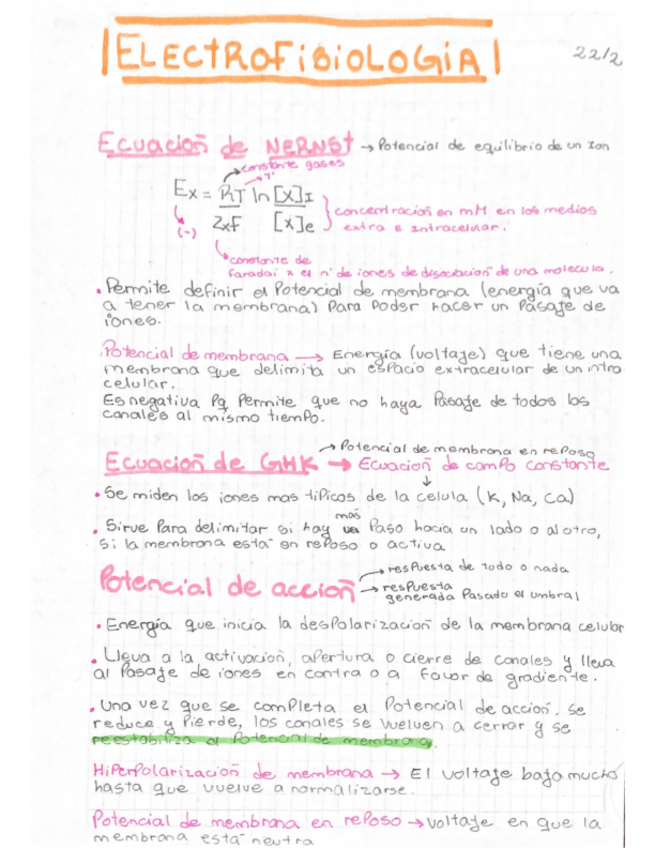 ELECTROFISIOLOGIA
22/2
Ecuacioń de NERNST → Potencial de equilibrio de un Ion
constante gases
T°
Ex = RT ln [x]I
(-) ZxF [x]e
concentracios en mM en los medios
extra e intracelular.
constante de
faradai x el n° de iones de disociacion de una molecula.
• Permite definir el Potencial de membrana (energía que va
a tener la membrana) Para Poder hacer un Pasaje de
iones.
Potencial de membrana → Energía (voltaje) que tiene una
membrana que delimita un espacio extracelular de un intra
celular.
Es negativa Pq Permite que no haya Pasaje de todos los
canales al mismo tiempo.
→ Potencial de membrana en reposo
Ecuacioń de GHK → Ecuacion de campo constante
• Se miden los iones mas tipicos de la celula (K, Na, Ca)
mas
• Sirve Para delimitar si hay Paso hacia un lado o al otro,
si la membrana está en reposo o activa
Potencial de accioń
→ respuesta de todo o nada
→ respuesta
generada Pasado el umbral
• Energía que inicia la despolarizacioń de la membrana celular
• Lleva a la activacion, apertura o cierre de canales y lleva
al Pasaje de iones en contra o a favor de gradiente.
• Una vez que se completa el Potencial de accion, se
reduce y Pierde, los canales se vuelven a cerrar y se
reestabiliza el Potencial de membrana.
Hiperpolarizacioń de membrana → El voltaje baja mucho
hasta que vuelve a normalizarse.
Potencial de membrana en reposo → voltaje en que la
membrana está neutra